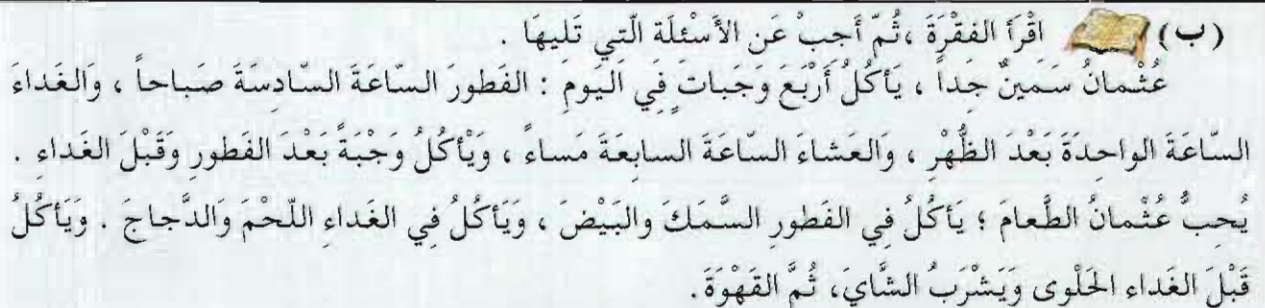 (ب) اقْرَأ الفقْرَةَ ،ثُمّ أَجِبْ عَن الأَسْئِلَة الّتِي تَليهَا .
عُثْمانُ سَمينٌ جداً ، يَأكُلُ أَرْبَعَ وَجَبات فِي اليَوم : الفَطورَ السّاعَةَ السّادسَةَ صَباحاً ، وَالغَداءَ
السّاعَةَ الواحدَةَ بَعْدَ الظُّهْر ، وَالعَشاءَ السّاعَةَ السابعَةَ مَساءً ، وَيَأكُلُ وَجْبَةً بَعْدَ الفَطور وَقَبْلَ الغَداء .
يُحبُّ عُثْمانُ الطَّعامَ ؛ يَأكُلُ في الفَطور السَّمَكَ والبَيْضَ ، وَيَأكُلُ في الغَداء اللّحْمَ وَالدَّجاجَ . وَيَأكُلُ
قَبْلَ الغَداء الحَلْوى وَيَشْرَبُ الشّايَ، ثُمَّ القَهْوَةَ .